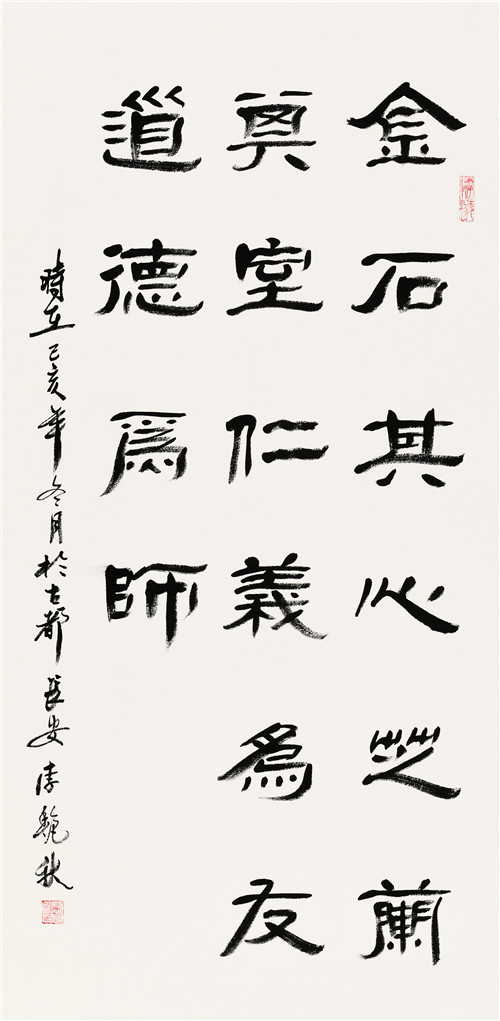 金石其心芝蘭
其室仁義為友
道德為師
時在己亥年冬月於古都長安李秋